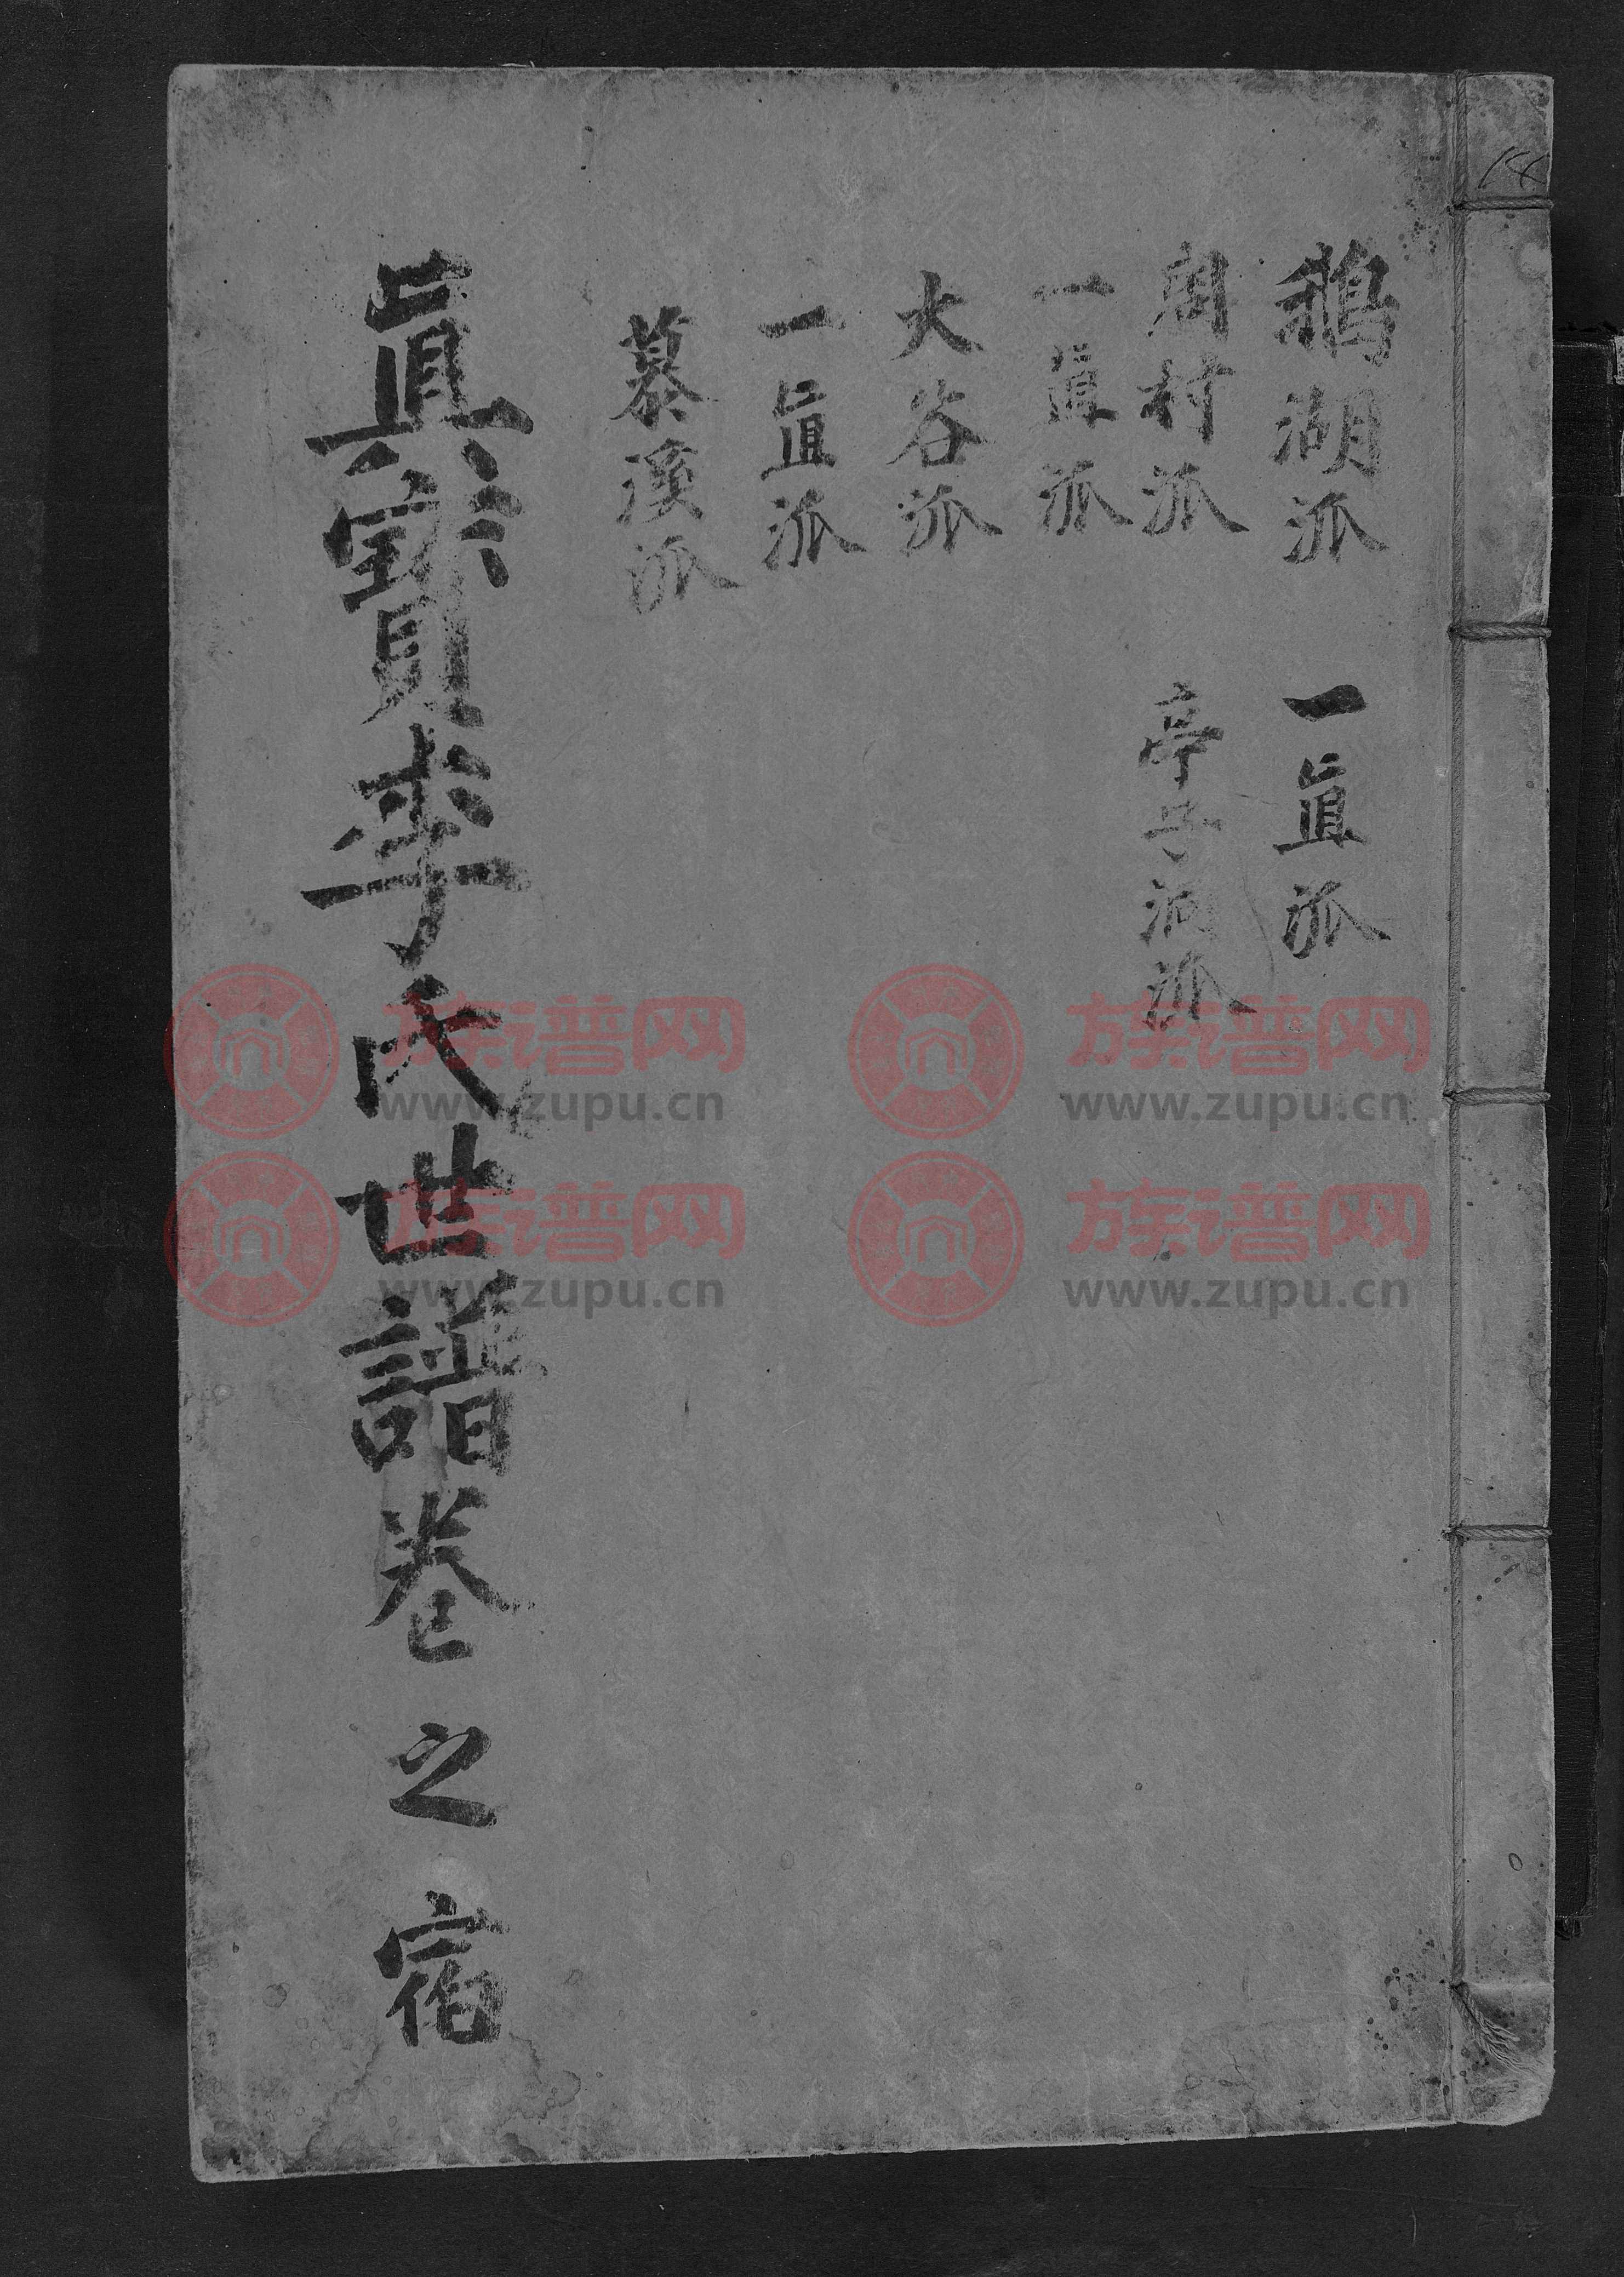 鵝湖派 一直派
周村派 亭子洞派
一直派
大谷派
一直派
慕溪派
眞寶李氏世譜卷之宿
18
族谱网
www.zupu.cn
族谱网
www.zupu.cn
族谱网
www.zupu.cn
族谱网
www.zupu.cn